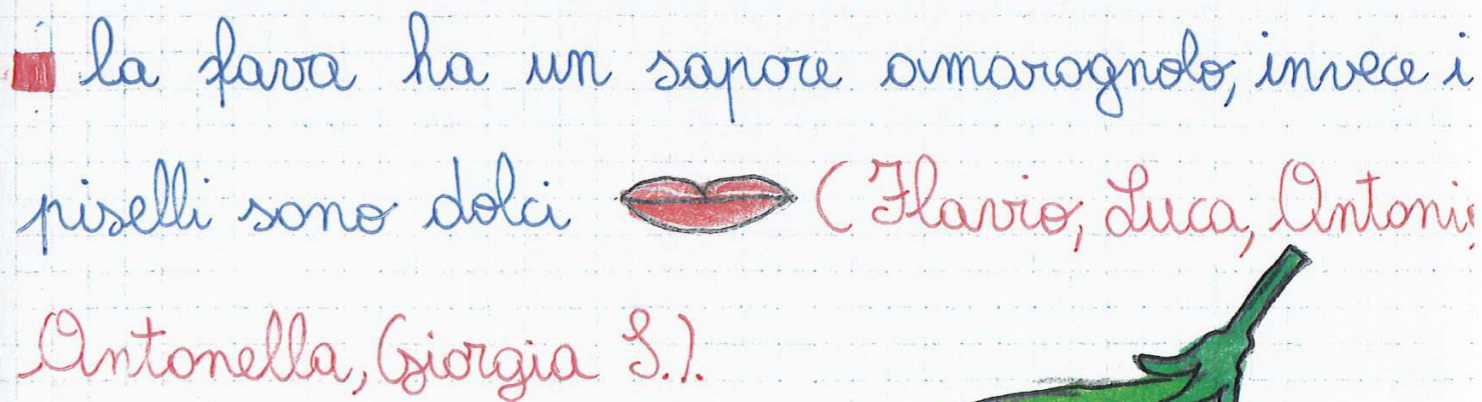 la fava ha un sapore amarognolo, invece i
piselli sono dolci (Flavio, Luca, Antoni
Antonella, Giorgia S.).